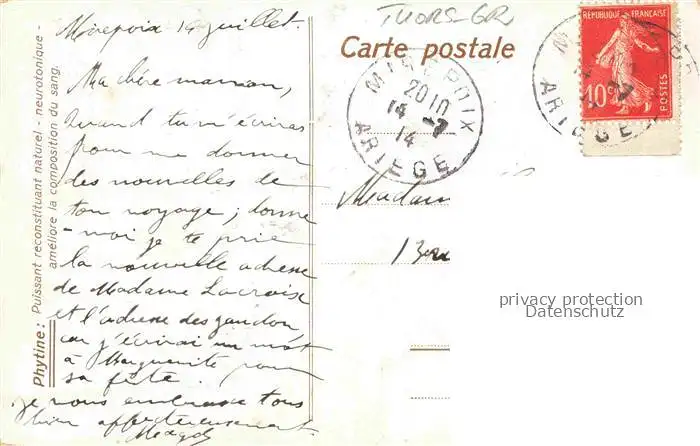 Phytine: Puissant reconstituant naturel - neurotonique -
améliore la composition du sang.
Mirepoix 14 juillet.
Ma chère maman,
Quand tu m'écriras
pour me donner
des nouvelles de
ton voyage; donne
-moi je te prie
la nouvelle adresse
de Madame Lacroix
et l'adresse des
car j'écrirai un mot
à Marguerite pour
sa fête.
je vous embrasse tous
bien affectueusement.
THORS-GR
Carte postale
MIREPOIX
2010
14 -7
14
ARIEGE
RÉPUBLIQUE FRANÇAISE
10 c
POSTES
ARIEGE
Madam
privacy protection
Datenschutz